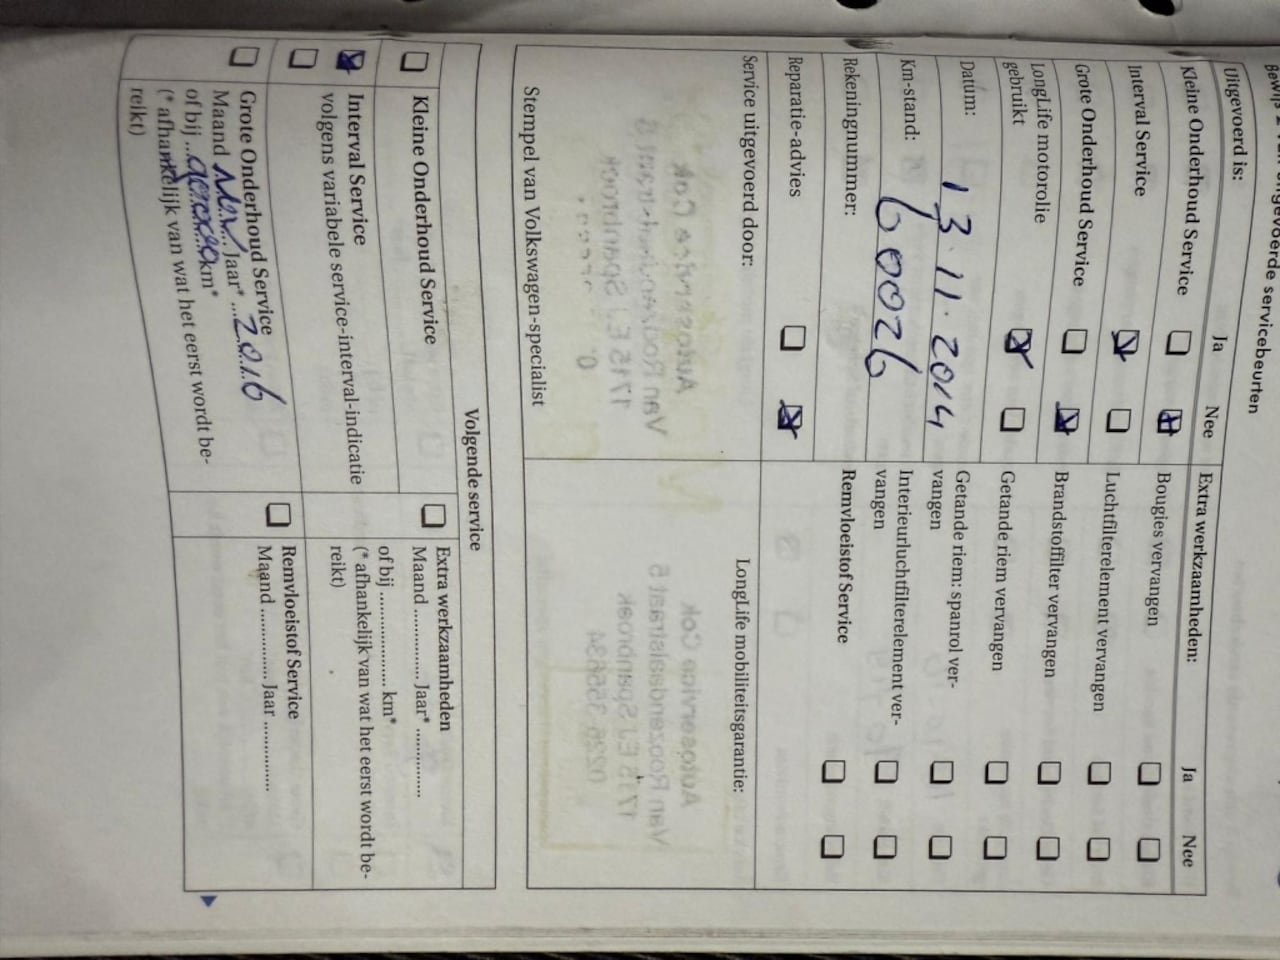 uitgevoerde servicebeurten
Uitgevoerd is:
Ja
Nee
Kleine Onderhoud Service
Interval Service
Grote Onderhoud Service
LongLife motorolie
gebruikt
Datum: 13.11.2014
Km-stand: 60026
Rekeningnummer:
Reparatie-advies
Extra werkzaamheden:
Ja
Nee
Bougies vervangen
Luchtfilterelement vervangen
Brandstoffilter vervangen
Getande riem vervangen
Getande riem: spanrol ver-
vangen
Interieurluchtfilterelement ver-
vangen
Remvloeistof Service
Service uitgevoerd door:
Stempel van Volkswagen-specialist
LongLife mobiliteitsgarantie:
Volgende service
Kleine Onderhoud Service
Interval Service
volgens variabele service-interval-indicatie
Grote Onderhoud Service
Maand ... Jaar* ...2016
of bij ... km*
(* afhankelijk van wat het eerst wordt be-
reikt)
Extra werkzaamheden
Maand ............. Jaar* .............
of bij .................. km*
(* afhankelijk van wat het eerst wordt be-
reikt)
Remvloeistof Service
Maand ............. Jaar .............